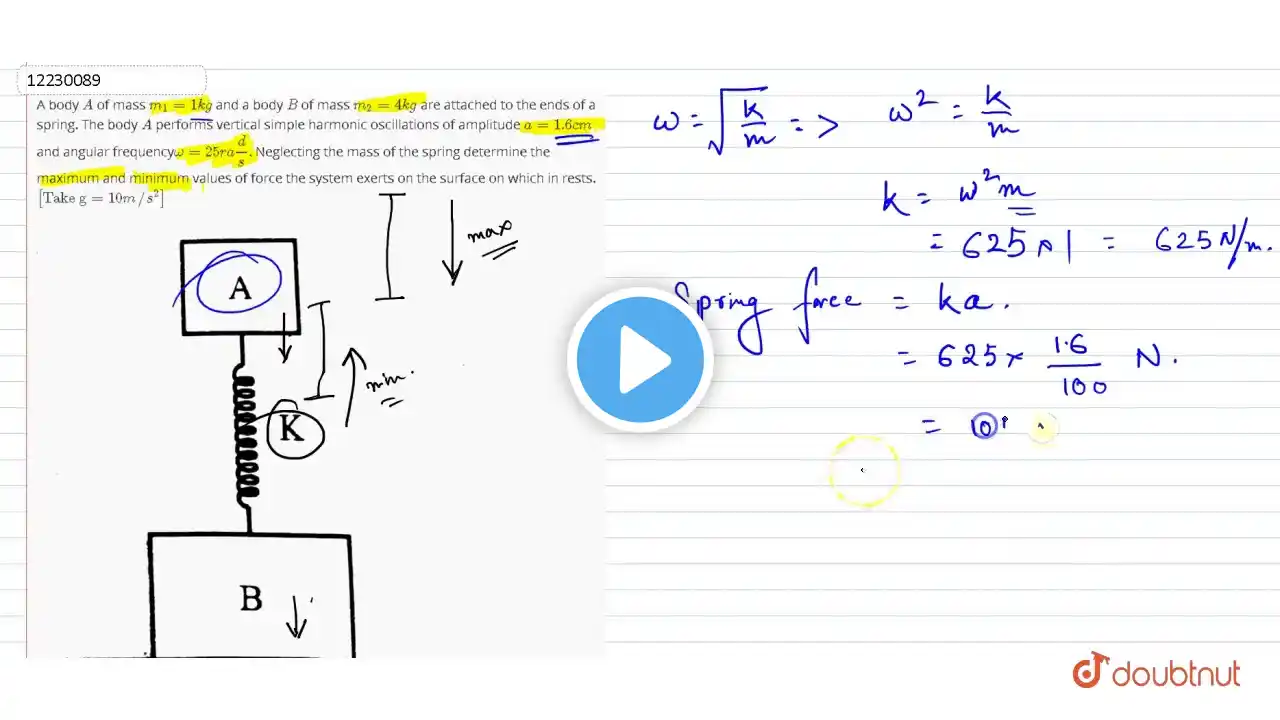 12230089
A body A of mass m₁ = 1kg and a body B of mass m₂ = 4kg are attached to the ends of a
spring. The body A performs vertical simple harmonic oscillations of amplitude a = 1.6cm
and angular frequency ω = 25ra d/s. Neglecting the mass of the spring determine the
maximum and minimum values of force the system exerts on the surface on which in rests.
[Take g = 10m/s²]
max
A
min.
K
B
ω = √(k/m) => ω² = k/m
k = ω²m
= 625 × 1 = 625 N/m.
Spring force = ka.
= 625 × 1.6/100 N.
= 10
doubtnut